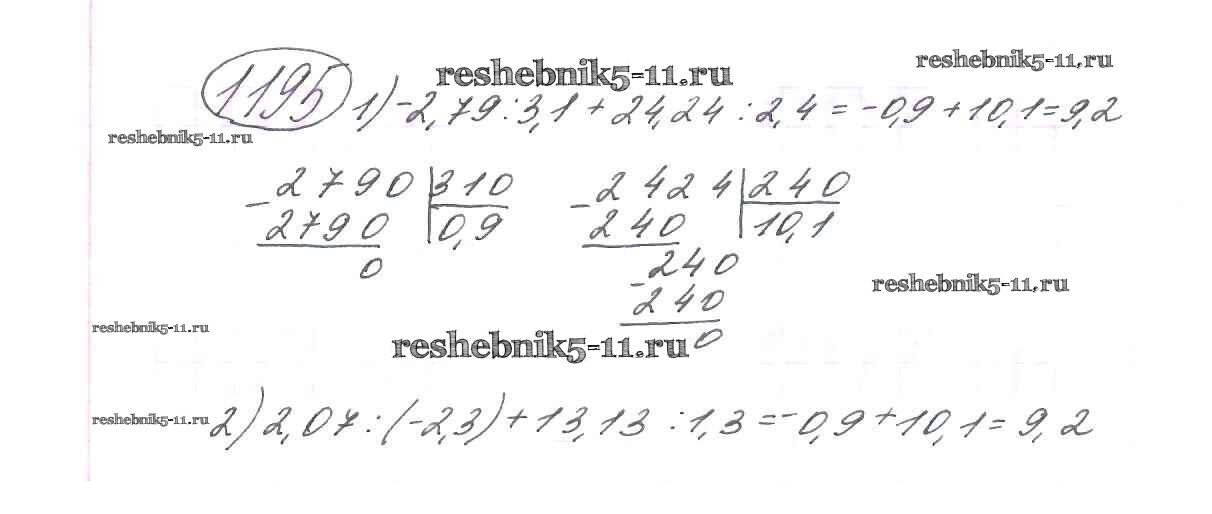 reshebnik5-11.ru
reshebnik5-11.ru
1195 1) -2,79:3,1 + 24,24 : 2,4 = -0,9 + 10,1 = 9,2
reshebnik5-11.ru
- 2790 | 310 - 2424 | 240
2790 | 0,9 240 | 10,1
0 - 240
reshebnik5-11.ru
240
reshebnik5-11.ru
reshebnik5-11.ru 0
reshebnik5-11.ru
2) 2,07 : (-2,3) + 13,13 : 1,3 = -0,9 + 10,1 = 9,2